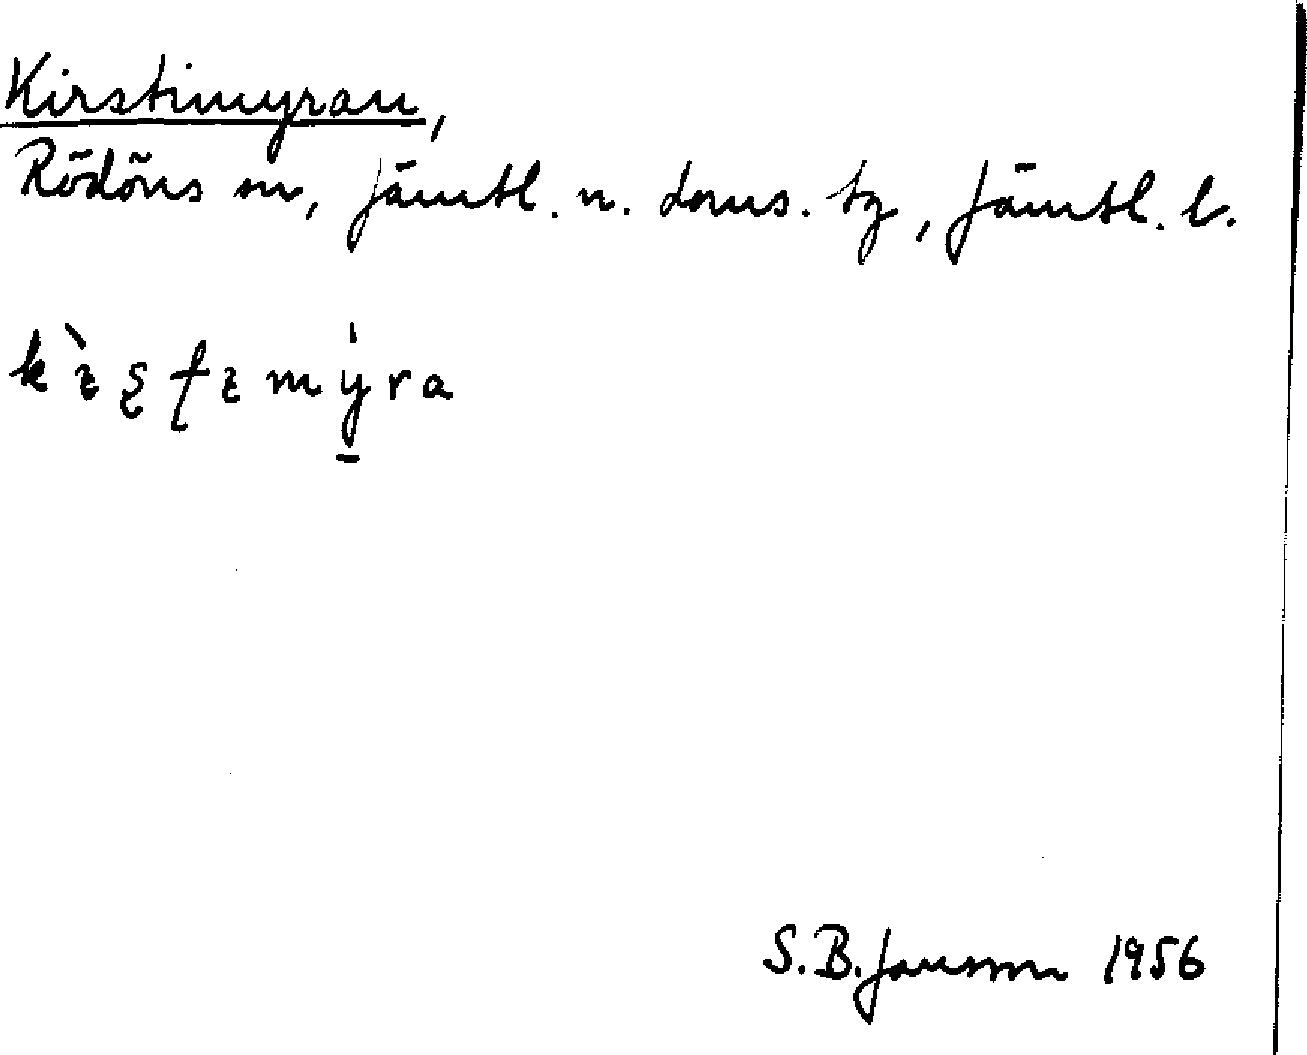 Kirstimyran,
Rödöns sn, Jämtl. n. doms. tg, Jämtl. l.
S.B. Jansson 1956